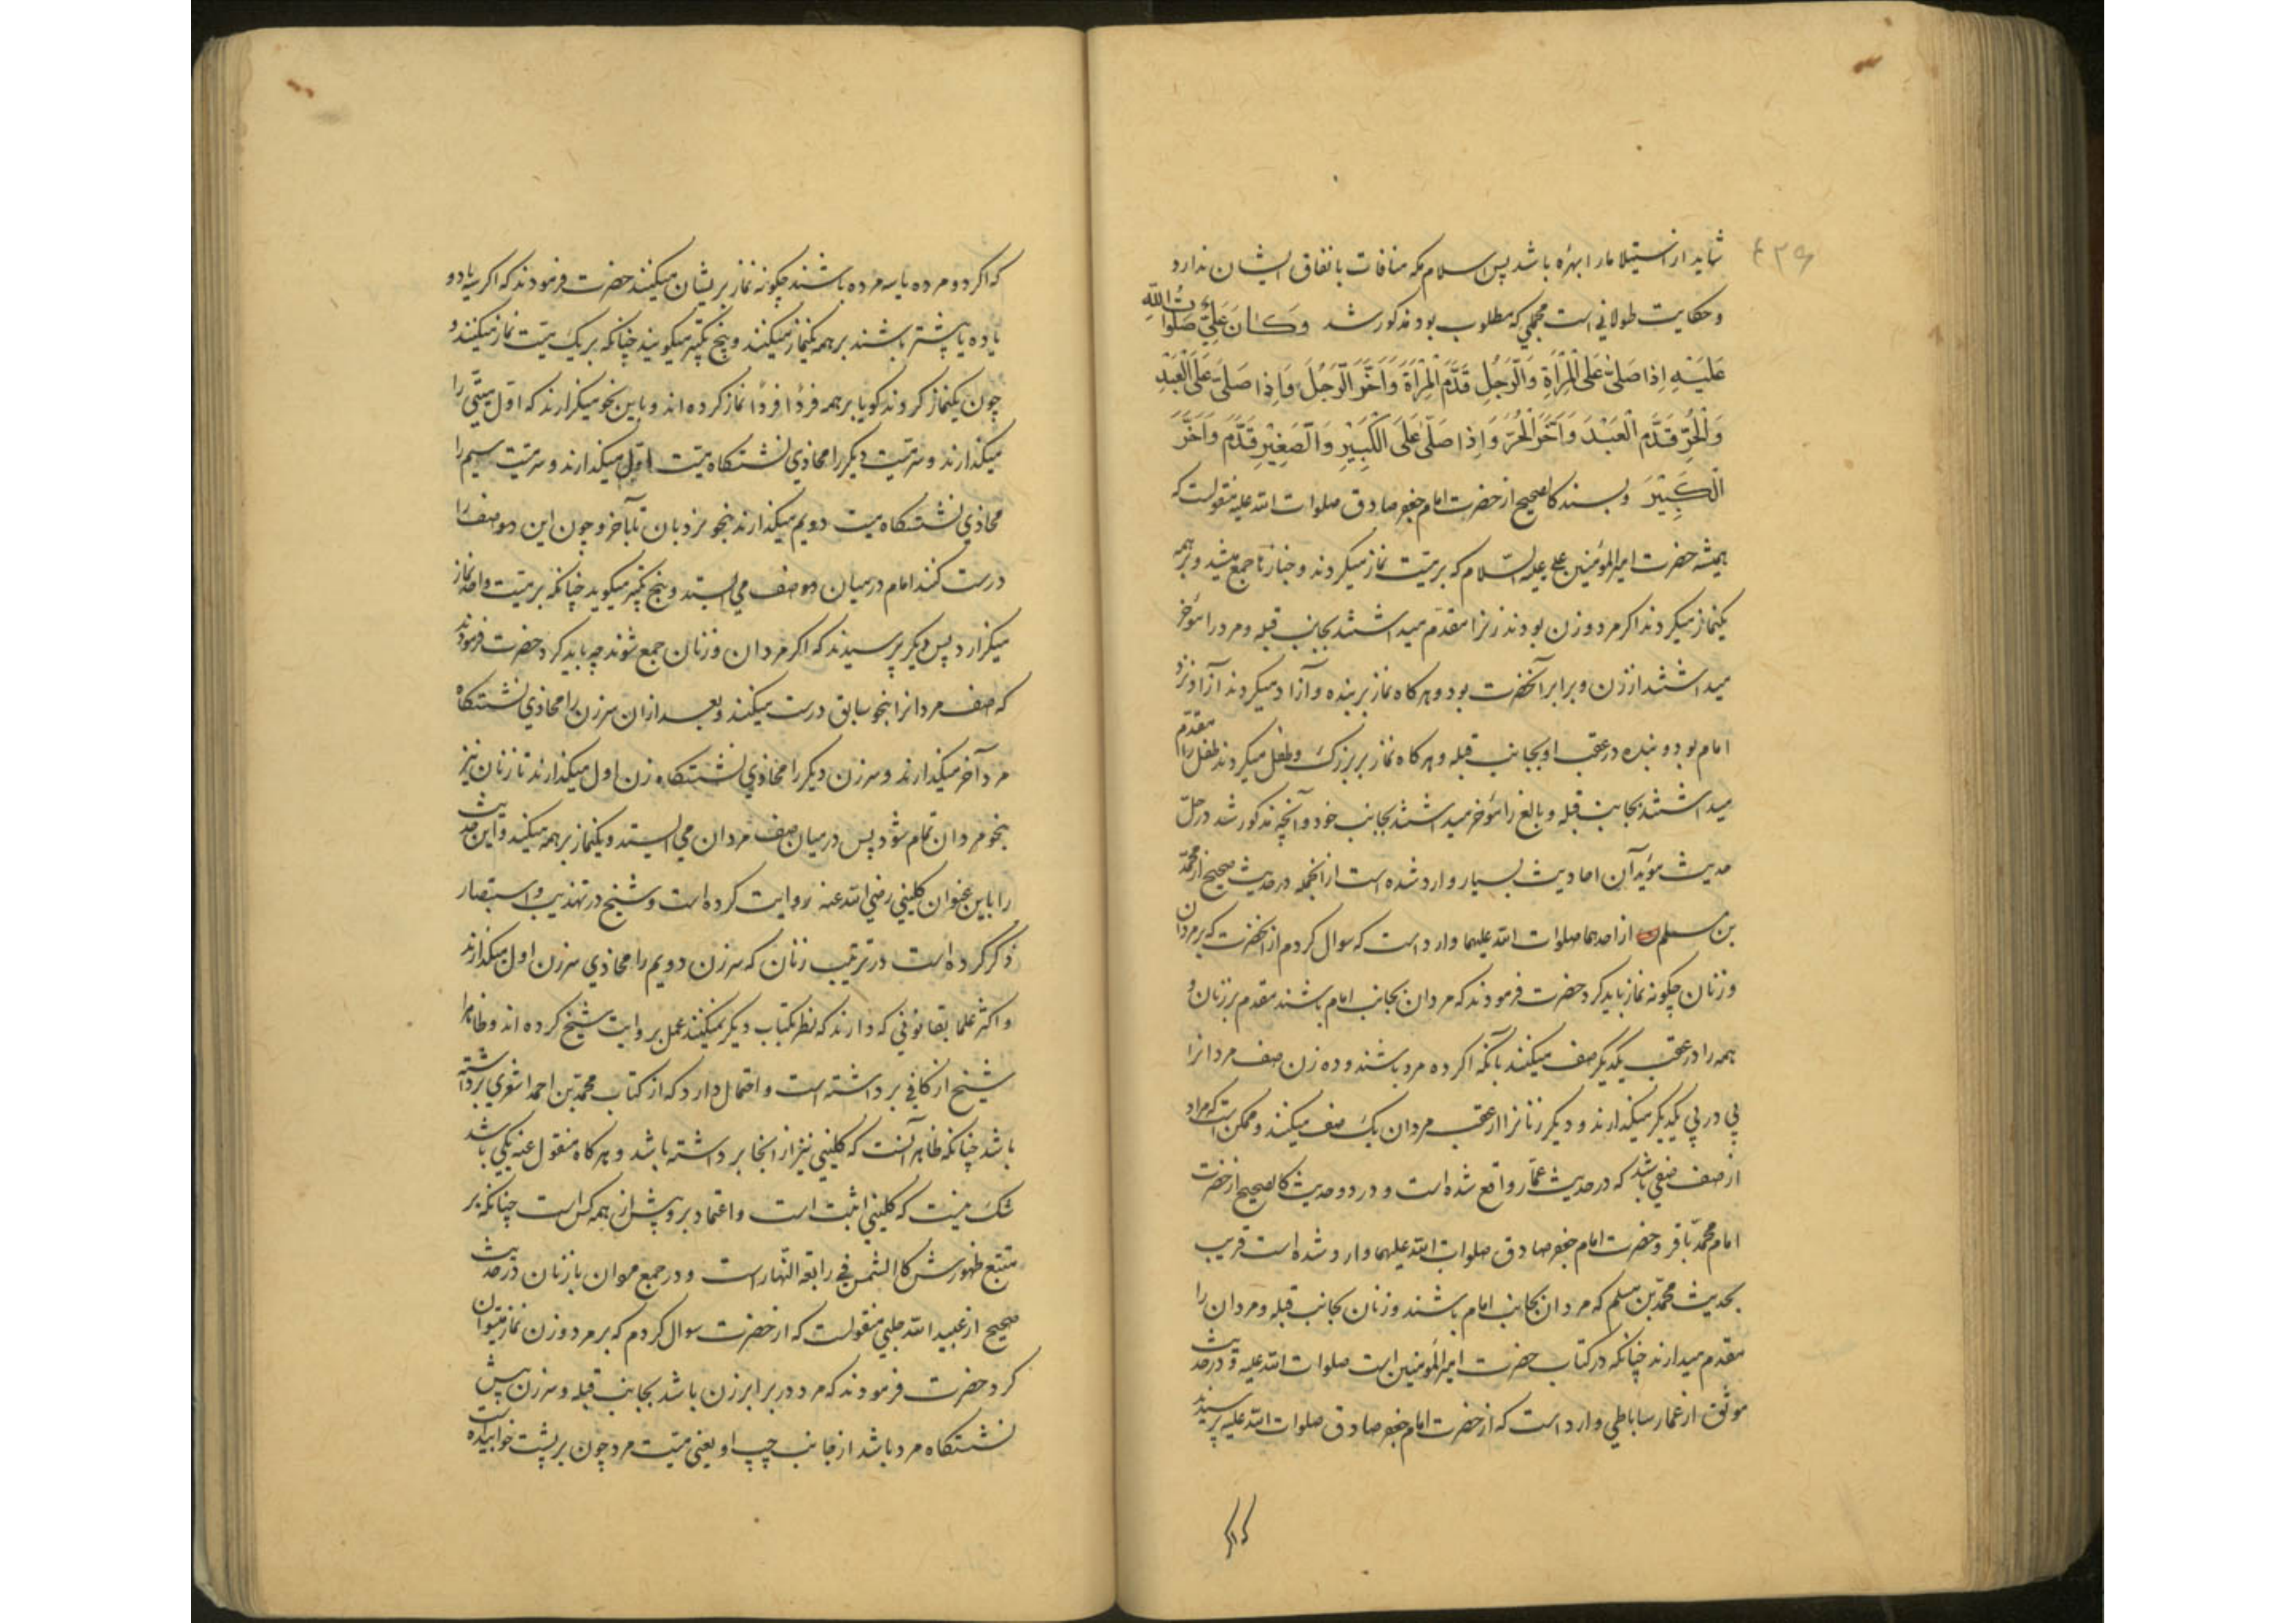 ۴۲۹
شاید از استیلا ما را بهره باشد پس اسلام مکه منافات با نفاق ایشان ندارد
و حکایت طولانی است مجملی که مطلوب بود مذکور شد وَكَانَ عَلِيٌّ صَلَوَاتُ اللَّهِ
عَلَيْهِ اِذَا صَلّىٰ عَلَى الْمَرْأَةِ وَالرَّجُلِ قَدَّمَ الْمَرْأَةَ وَاَخَّرَ الرَّجُلَ وَاِذَا صَلّىٰ عَلَى الْعَبْدِ
وَالْحُرِّ قَدَّمَ الْعَبْدَ وَاَخَّرَ الْحُرَّ وَاِذَا صَلّىٰ عَلَى الْكَبِيْرِ وَالصَّغِيْرِ قَدَّمَ وَاَخَّرَ
الْكَبِيْرَ و بسند کالصحیح از حضرت امام جعفر صادق صلوات الله علیه منقولست که
همیشه حضرت امیر المؤمنین علی علیه السّلام که بر میّت نماز میکردند و جنازها جمع میشد و بر همه
یکنماز میکردند اگر مرد و زن بودند زنرا مقدّم میداشتند بجانب قبله و مرد را مؤخر
میداشتند از زن و برابر آنحضرت بود و هرکاه نماز بر بنده و آزاد میکردند آزاد نزد
امام بود و بنده در عقب او بجانب قبله و هرکاه نماز بر بزرک و طفل میکردند طفل را مقدّم
میداشتند بجانب قبله و بالغ را مؤخر میداشتند بجانب خود و آنچه مذکور شد در حلّ
حدیث مؤید آن احادیث بسیار وارد شده است از آنجمله در حدیث صحیح از محمّد
بن مسلم از احدهما صلوات الله علیهما وارد است که سوال کردم از آنحضرت که بر مردان
و زنان چکونه نماز باید کرد حضرت فرمودند که مردان بجانب امام باشند مقدم بر زنان و
همه را در عقب یکدیکر صف میکنند بآنکه اکر ده مرد باشند و ده زن صف مردانرا
پی در پی یکدیکر میکذارند و دیکر زنانرا از عقب مردان یک صف میکنند و ممکن است که مراد
از صف صفی باشد که در حدیث عمّار واقع شده است و در دو حدیث کالصحیح از حضرت
امام محمّد باقر و حضرت امام جعفر صادق صلوات الله علیهما وارد شده است قریب
بحدیث محمّد بن مسلم که مردان بجانب امام باشند و زنان بجانب قبله و مردان را
مقدم میدارند چنانکه در کتاب حضرت امیر المؤمنین است صلوات الله علیه و در حدیث
موثق از عمار ساباطی وارد است که از حضرت امام جعفر صادق صلوات الله علیه پرسیدند
که اکر
که اکر دو مرده یا سه مرده باشند چکونه نماز بر ایشان میکنند حضرت فرمودند که اکر سه یا دو
یا ده یا پیشتر باشند بر همه یکنماز میکنند و پنج تکبیر میکویند چنانکه بر یک میّت نماز میکنند و
چون یکنماز کردند کویا بر همه فردًا فردًا نماز کرده اند و باین نحو میکذارند که اول میّتی را
میکذارند و سر میّت دیکر را محاذی نشستکاه میّت اوّل میکذارند و سر میّت سیم را
محاذی نشستکاه میت دویم میکذارند بنحو نردبان تا بآخر و چون این دو صف را
درست کنند امام در میان دو صف می ایستد و پنج تکبیر میکوید چنانکه بر میّت واحد نماز
میکزارد پس دیکر پرسیدند که اکر مردان و زنان جمع شوند چه باید کرد حضرت فرمودند
که صف مردانرا بنحو سابق درست میکنند و بعد از آن سر زن را محاذی نشستکاه
مرد آخر میکذارند و سر زن دیکر را محاذی نشستکاه زن اول میکذارند تا زنان نیز
بنحو مردان تمام شود پس در میان صف مردان می ایستد و یکنماز بر همه میکند و این حدیث
را باین عنوان کلینی رضی الله عنه روایت کرده است و شیخ در تهذیب و استبصار
ذکر کرده است در ترتیب زنان که سر زن دویم را محاذی سر زن اول میکذارند
و اکثر علما بقانونی که دارند که نظر بکتاب دیکر نمیکنند عمل بر روایت شیخ کرده اند و ظاهرا
شیخ از کافی برداشته است و احتمال دارد که از کتاب محمّد بن احمد اشعری برداشته
باشد چنانکه ظاهر آنست که کلینی نیز از انجا برداشته باشد و هرکاه منقول عنه یکی باشد
شک نیست که کلینی اثبت است و اعتماد برو پیش از همه کس است چنانکه بر
متتبع ظهورش کالشمس فی رابعة النّهار است و در جمع مردان با زنان در حدیث
صحیح از عبید الله حلبی منقولست که از حضرت سوال کردم که بر مرد و زن نماز میتوان
کرد حضرت فرمودند که مرد در برابر زن باشد بجانب قبله و سر زن پیش
نشستکاه مرد باشد از جانب چپ او یعنی میّت مرد چون بر پشت خوابیده است